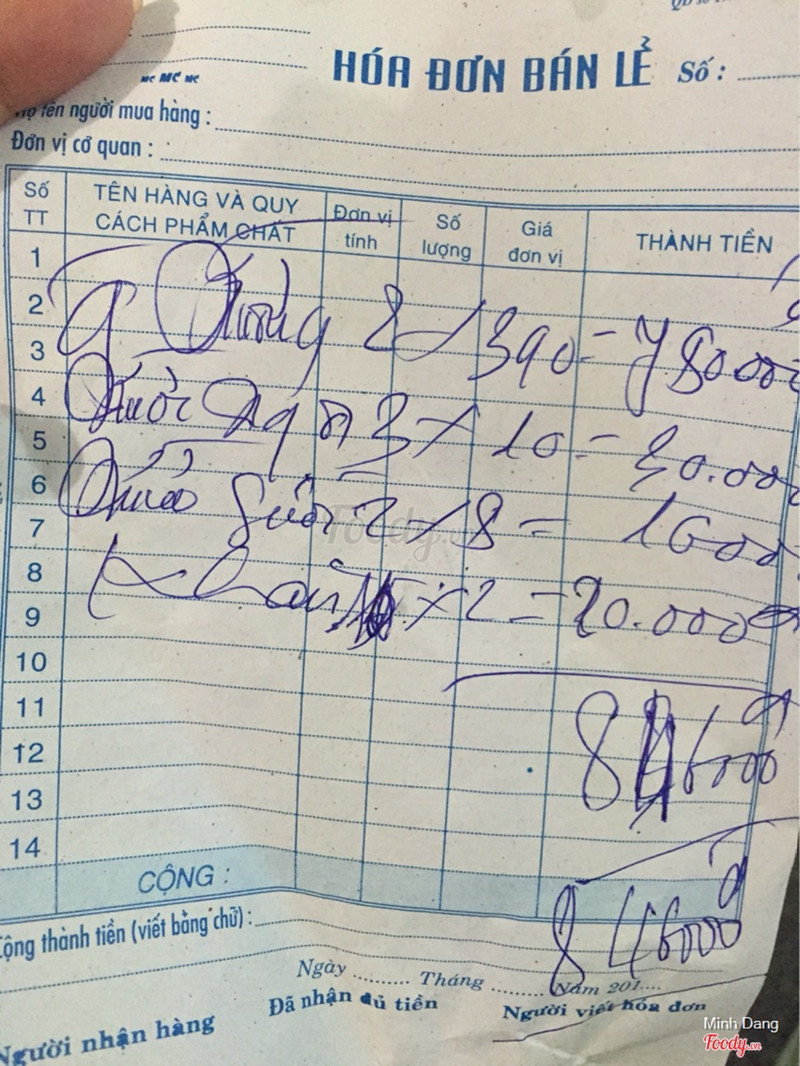 HÓA ĐƠN BÁN LẺ Số :
tên người mua hàng :
Đơn vị cơ quan :
Số TT
TÊN HÀNG VÀ QUY CÁCH PHẨM CHẤT
Đơn vị tính
Số lượng
Giá đơn vị
THÀNH TIỀN
1
2
2 x 390 = 780.000
3
4
Nước Ngọt 3 x 10 = 30.000
5
6
Nước Suối 2 x 8 = 16000
7
8
Khăn x 2 = 20.000đ
9
10
11
846000đ
12
13
14
CỘNG :
846000đ
Cộng thành tiền (viết bằng chữ) :
Ngày ......... Tháng ......... Năm 201....
Người nhận hàng
Đã nhận đủ tiền
Người viết hóa đơn
Foody.vn
Minh Dang
Foody.vn